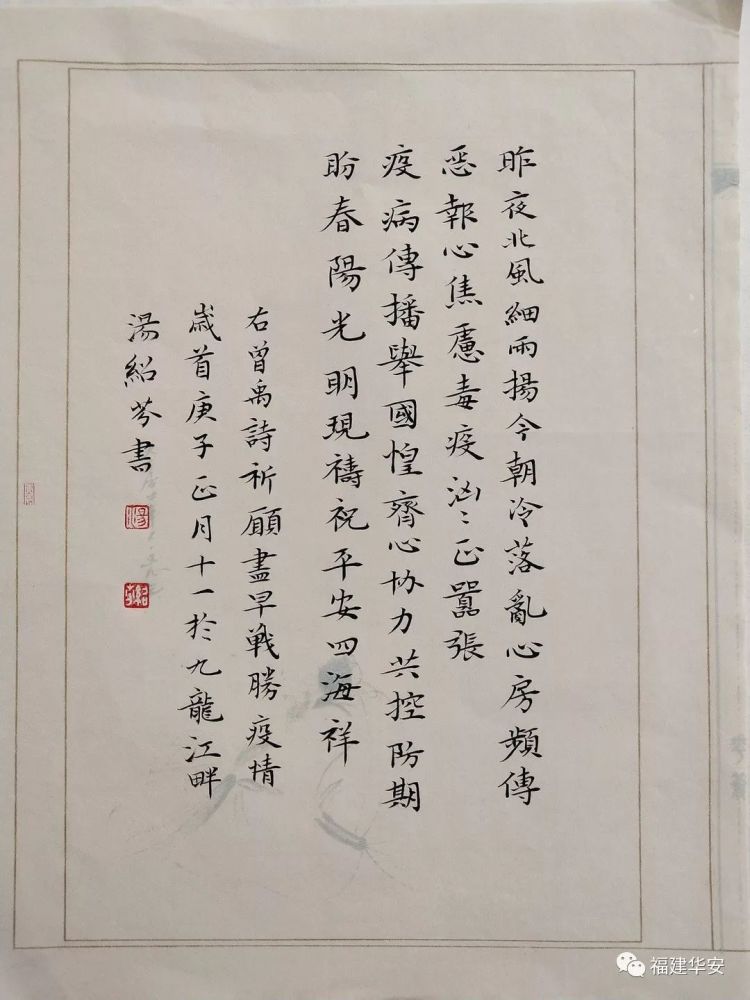 昨夜北風細雨揚今朝冷落亂心房頻傳
惡報心焦慮毒疫汹〻正囂張
疫病傳播舉國惶齊心协力共控防期
盼春陽光明現禱祝平安四海祥
右曾禹詩祈願盡早戦勝疫情
歲首庚子正月十一於九龍江畔
湯紹芬書
福建华安